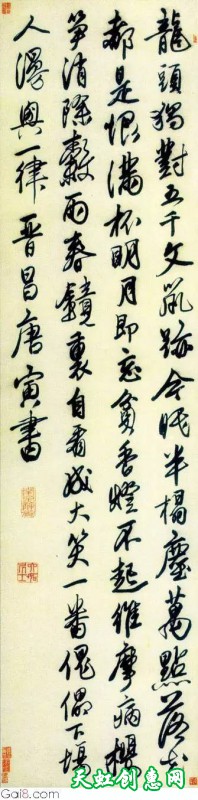 龍頭獨對五千文鼠跡今眠半榻塵萬點落花
都是恨滿杯明月即忘貧香燈不起維摩病櫻
筍消除穀雨春鏡裏自看成大笑一番傀儡下場
人漫興一律晉昌唐寅書
Gai8.com
天虹创意网